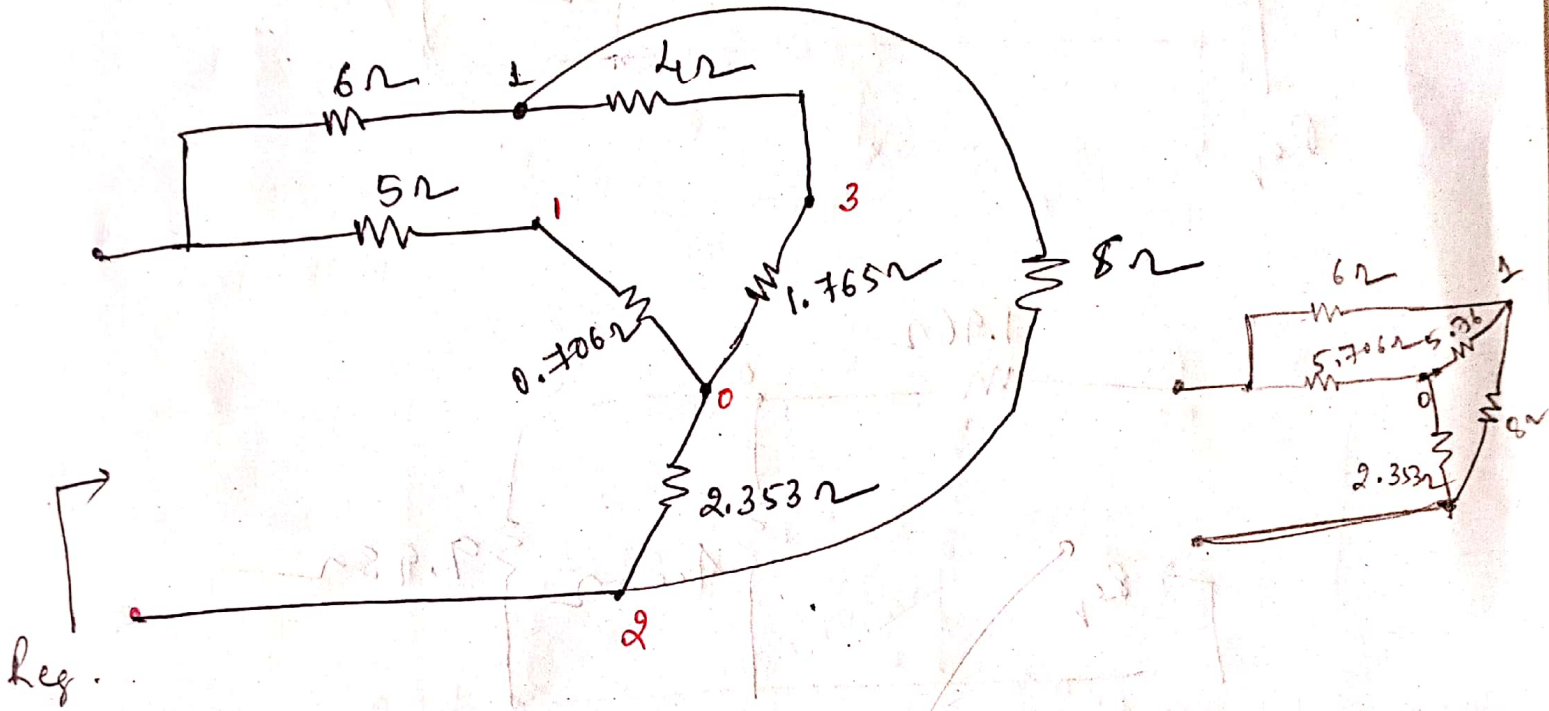 6Ω
1
4Ω
5Ω
1
3
0.706Ω
1.765Ω
8Ω
0
2.353Ω
2
Req.
6Ω
1
5.706Ω
5.76
0
8Ω
2.353Ω